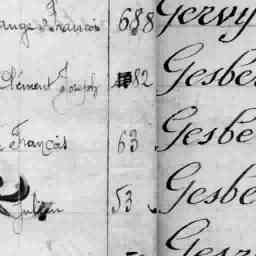 François 688 Gervy
Clément Joseph 82 Gesbe
François 63 Gesbe
Julien 53 Gesbe